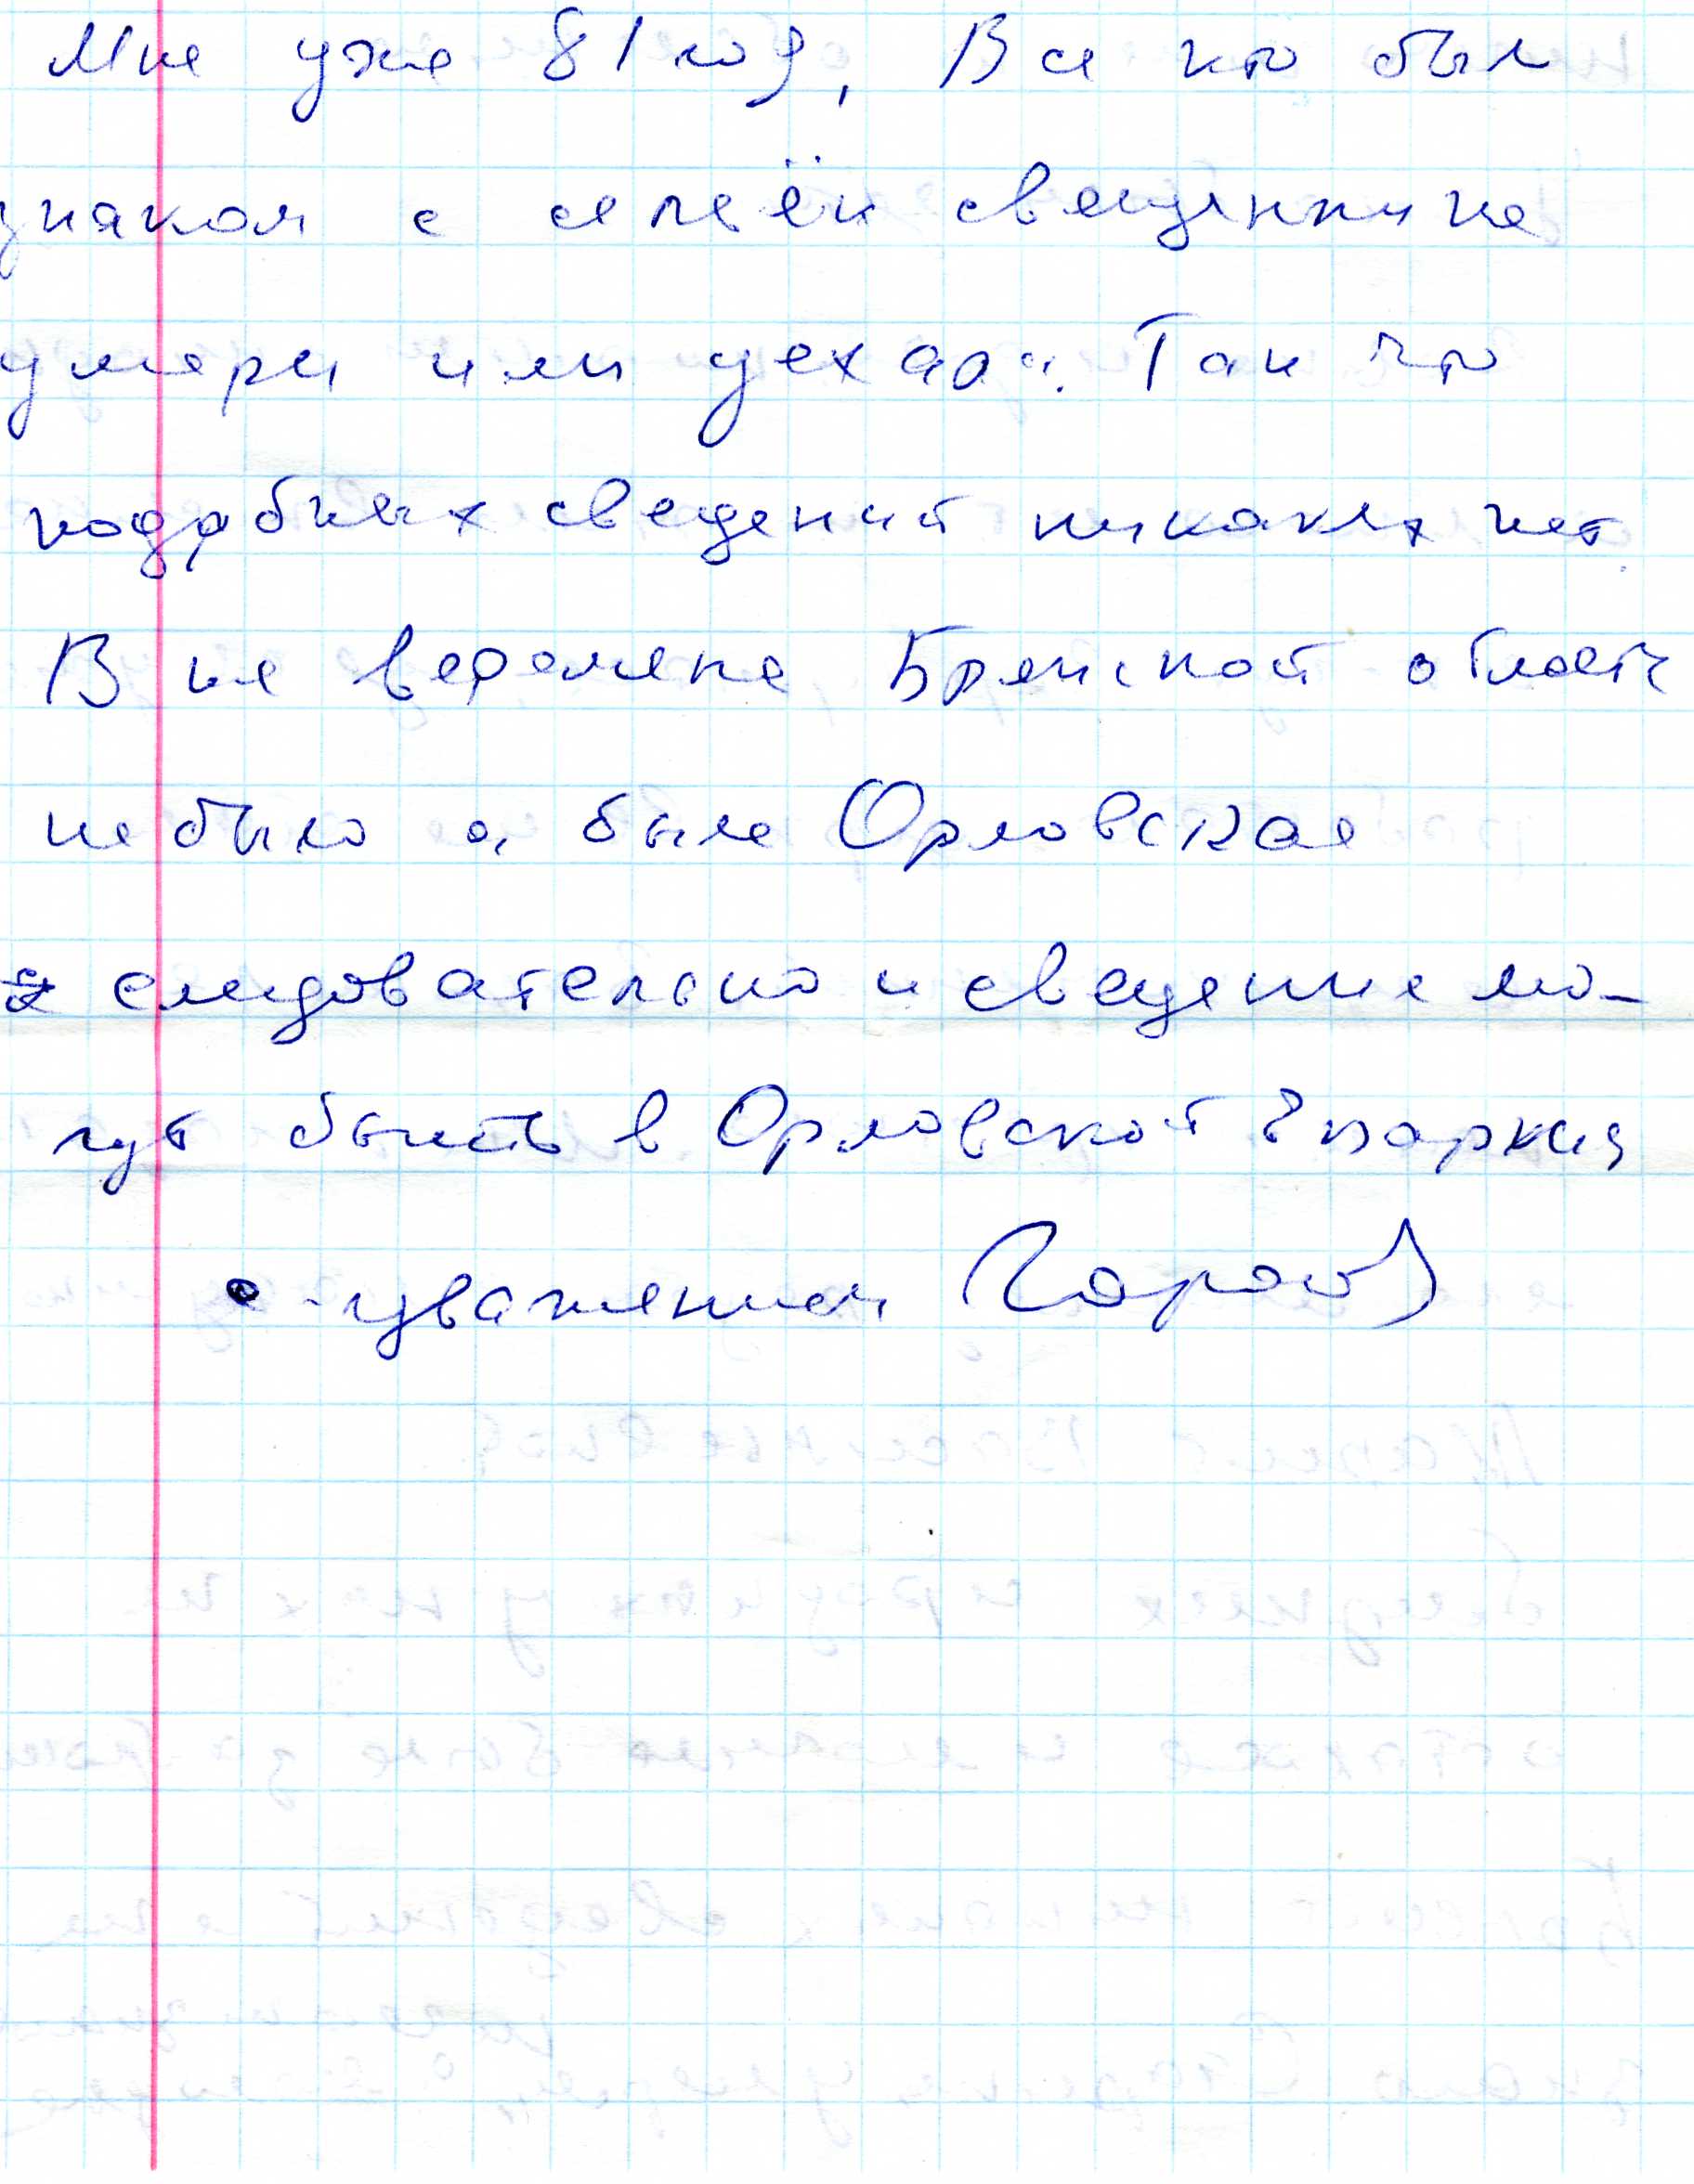 Мне уже 81 год, Все кто был
знаком с семьёй священника
умерли или уехали. Так что
подробных сведений никаких нет.
В те времена Брянской области
не было а была Орловская
следовательно и сведения мо-
гут быть в Орловской Епархии
с уважением